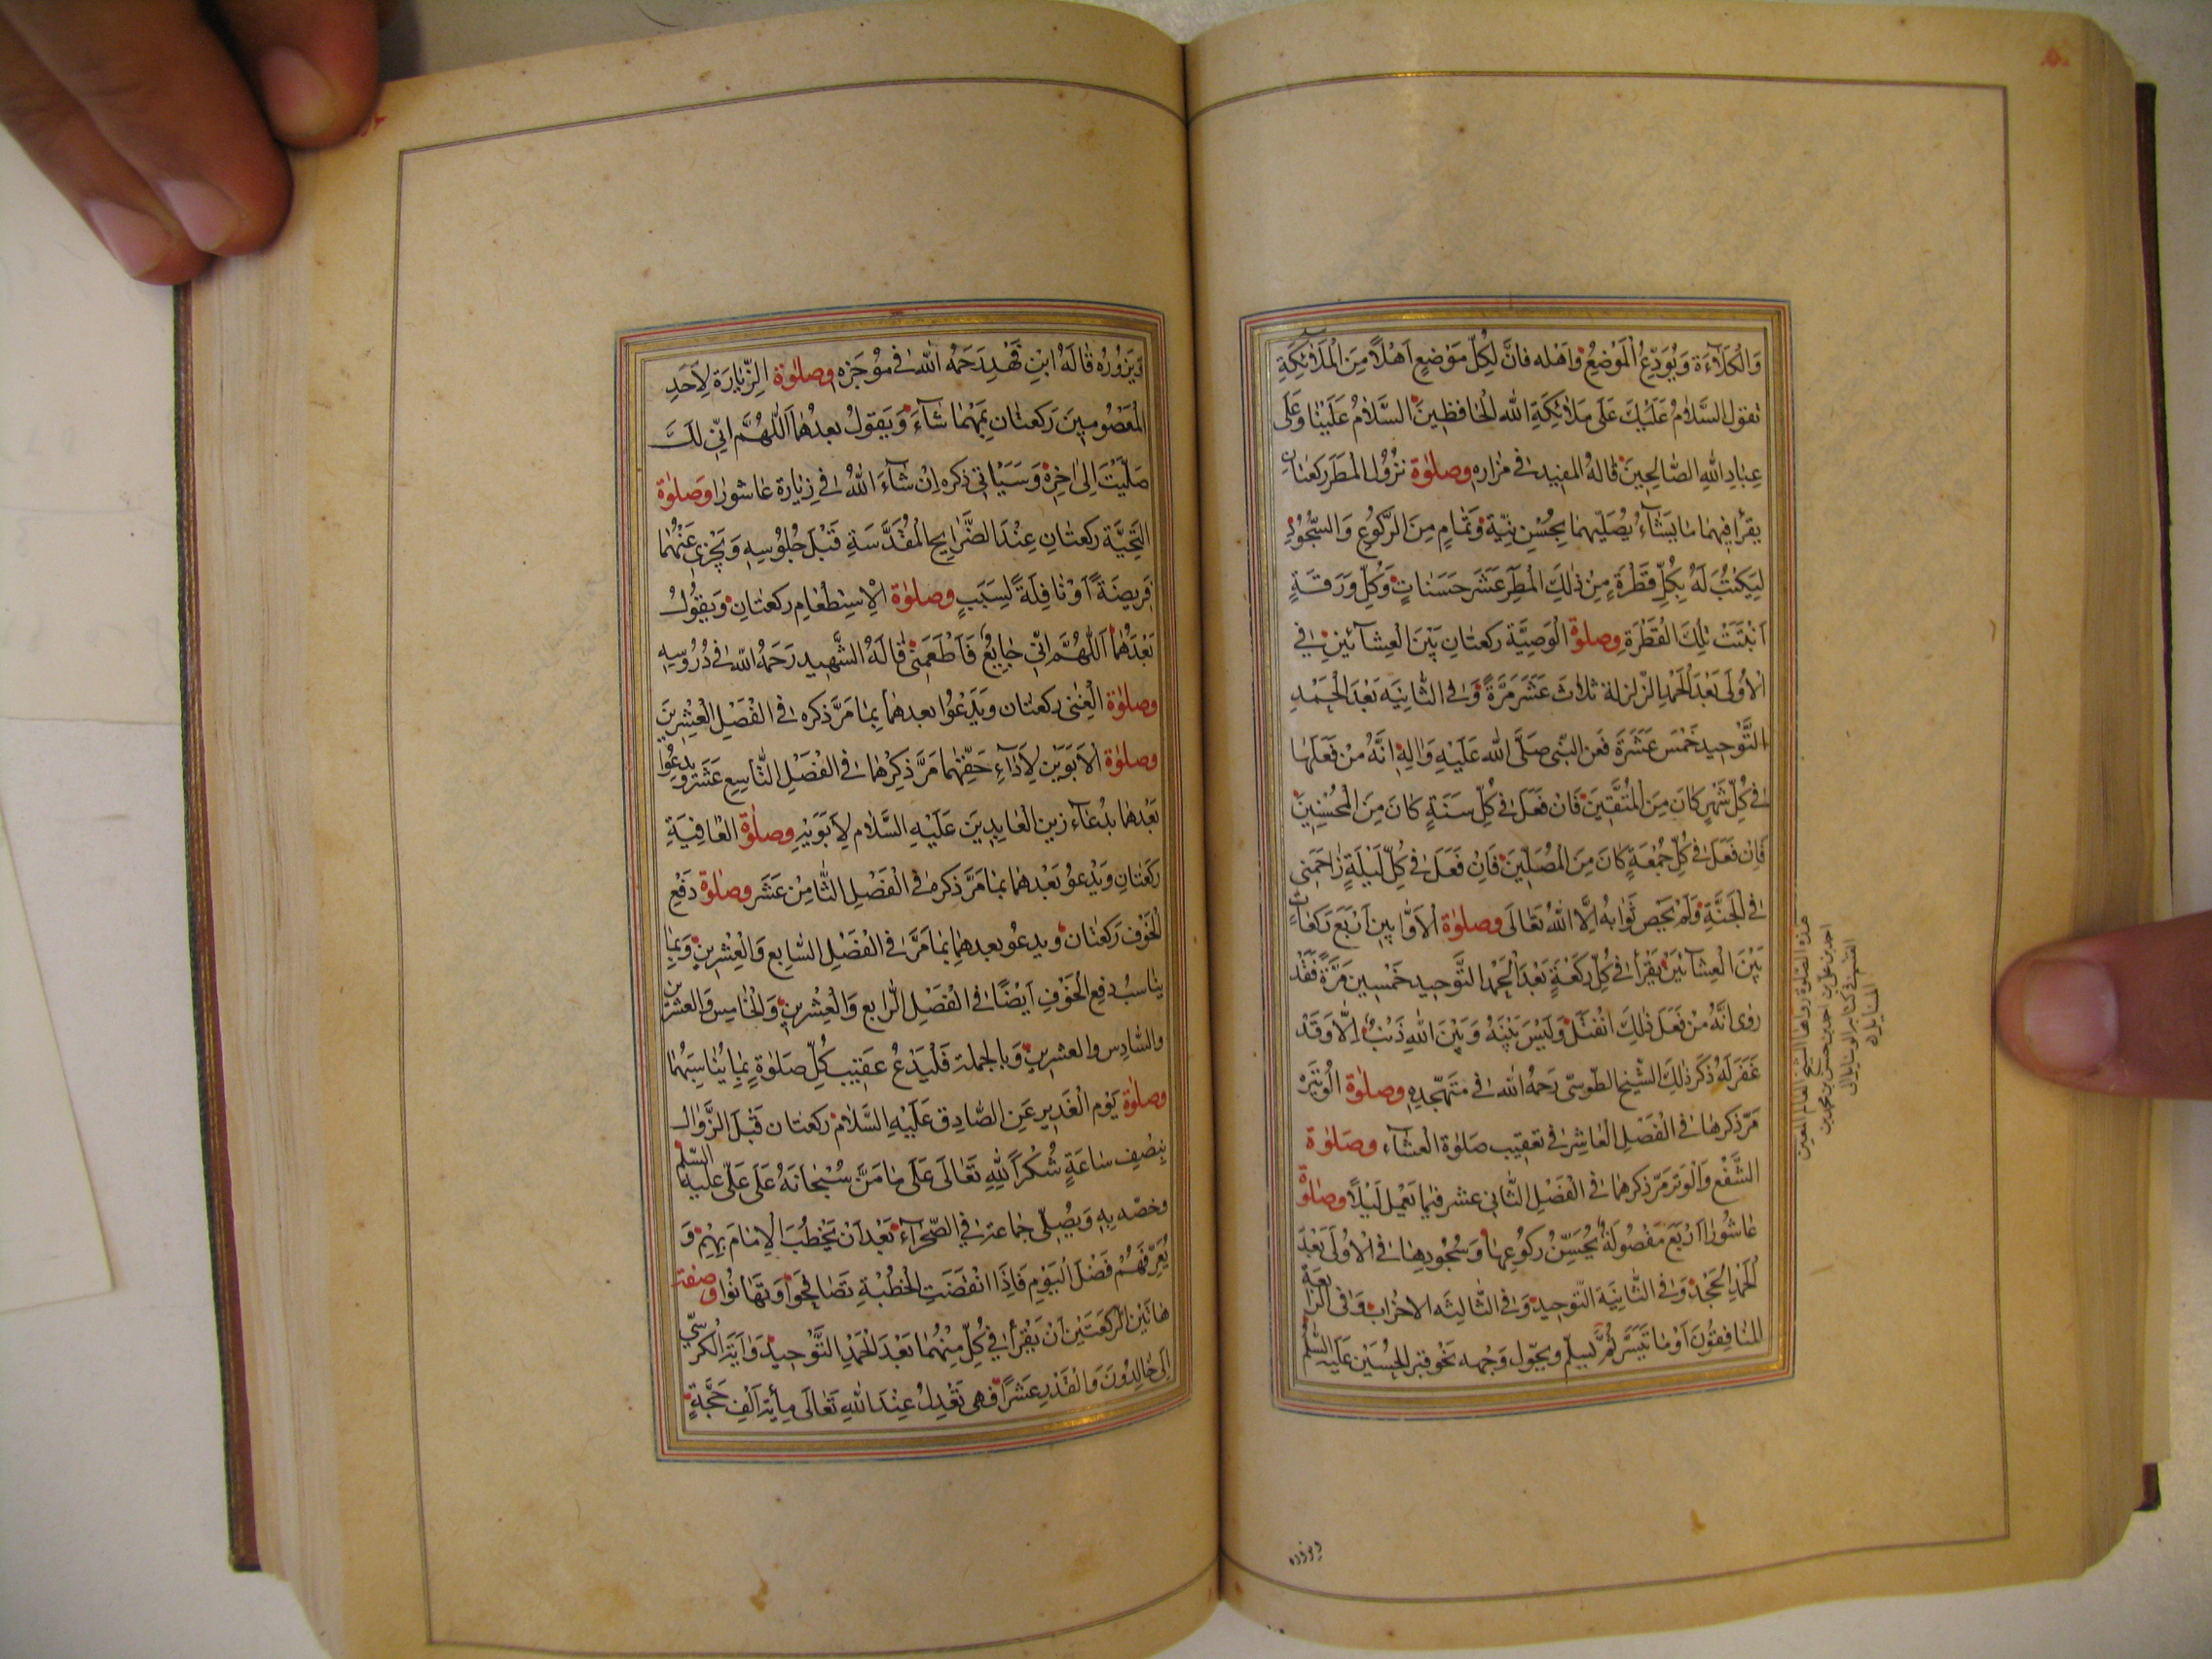 وَالْكَلَآءَة وَيُوَدِّعُ الْمَوْضِعُ وَاهْله فَانَّ لِكُلِّ مَوْضِعٍ اَهْلًا مِنَ الْمَلَائِكَةِ
تقول السَّلامُ عَلَيْكَ عَلَى مَلَائِكَةِ الله الْحَافِظِينَ السَّلامُ عَلَيْنَا وَعَلَى
عِبَادِ اللهِ الصَّالِحِينَ قَالهُ المفيد فى مزاره وصلوة نزُولِ المَطَر ركعتانِ
يقرأ فيهمَا مَا يَشَآءُ يُصَلّيهما بِحُسْنِ نيَّةٍ وَتَمَامٍ مِنَ الرَّكُوعِ وَالسُّجُوْدِ
لِيَكْتُبَ لَهُ بِكُلِّ قَطْرَةٍ مِنْ ذٰلِكَ الْمَطَرِ عَشَرَ حَسَنَاتٍ وَكُلِّ وَرَقَةٍ
انْبَتَتْ تِلكَ الْقَطْرَةِ وصلوة الْوَصِيَّة ركعتان بَيْنَ الْعِشَائَيْنِ فى
الاُولَى بَعْدَ الْحَمْدِ الزلزلة ثَلاثَ عَشَرَ مَرَّةً وَفى الثَّانِيَه بَعْدَ الْحَمْدِ
التَّوْحِيد خَمْسَ عَشَرَةَ فعَن النبّى صَلَّى الله عَلَيْهِ وَالِهِ انَّهُ مَنْ فَعَلَهَا
فى كُلِّ شَهْرٍ كَانَ مِنَ الْمُتَّقِينَ فَانْ فَعَلَ فى كُلِّ سَنَةٍ كَانَ مِنَ الْمُحْسِنِينَ
فَاِنْ فَعَلَ فى كُلِّ جُمْعَةٍ كَانَ مِنَ الْمُصَلّينَ فَاِنْ فَعَلَ فى كُلِّ لَيْلَةٍ زَاحَمَنى
فى الْجَنَّةِ وَلَمْ يحَصِ ثَوَابهُ اِلَّا اللهُ تَعَالَى وصلوة الاَوَّابينَ اَرْبَع رَكعَاتٍ
بَيْنَ الْعِشَآئَيْنِ يَقْرَأ فى كُلّ رَكعَةٍ بَعْدَ الْحَمْد التَّوحِيد خَمْسِينَ مَرَّةً فَقَدْ
رُوى انَّهُ مَنْ فَعَلَ ذٰلِكَ انْفَتَلَ وَلَيْسَ بَيْنَهُ وَبَيْنَ اللهِ ذَنْبٌ اِلَّا وَقَدْ
غَفَرَ لَهُ ذَكَرَ ذٰلِكَ الشَّيْخ الطُّوسى رَحمَهُ الله فى مُتَهجّدِهِ وصلوة الْوُتَيْرَه
مَرّ ذِكرهَا فى الْفَصْلِ الْعَاشِر فى تعقيب صَلوة الْعشَآء وصَلوة
الشَّفْع وَالْوَتر مَرّ ذكرهمَا فى الْفَصْلِ الثَّانى عشر فيمَا يَعْمل لَيْلًا وصلوة
عَاشُورَا اَرْبَعَ مَفْصُولَة يُحَسِّنُ رَكُوعهَا وَسُجُودهَا فى الاُولَى بَعْدَ
الْحَمْدِ الجَحْد وَفى الثَّانِيَة التّوحِيد وَفى الثَّالِثَه الاحْزاب وَفى الرَّابِعَةِ
المنَافِقُونَ اَوْ مَا تَيَسَّر ثُمَّ يُسلّم ويُحّول وَجْهه نحَو قبْر الْحسَيْن عَلَيْهِ السَّلمُ
هذه الصلوة رواها الشيخ العالم المعين
احمد بن على بن احمد بن حسين بن محمد بن
ويزوره
وَيَزُورُهُ قَالَهُ ابْنِ فَهْد رَحمَهُ الله فى مُوْجَزه وصلوة الزِّيَارَة لِاَحَدِ
المَعْصُومِينَ رَكعتَان بِمَهْمَا شَآءَ وَيَقولُ بعدُهمَا اَللّهُمَّ انّى لَكَ
صَلَّيْتَ اِلى اخِرِهْ وَسَيَأتى ذكره اِنْ شَآءَ اللهُ فى زِيَارَة عَاشورَا وصَلوة
التَّحِيَّة رَكعَتَان عِنْدَ الضَّرَايِح الْمُقَدَّسَةِ قَبْلَ جُلُوسِهِ وَيُجْزى عَنْهُمَا
فَرِيضَةً اَوْ نَافِلَةً لِسَبَبٍ وصلوة الْاِسْتِطْعَامِ ركعتَانِ وَيَقُولُ
بَعْدَهُمَا اَللّهُمَّ انّى جَايِعُ فَاَطْعَمنى قَالَهُ الشَّهِيد رَحمَهُ الله فى دُرُوسِهِ
وصلوة الْغِنى ركعتَان وَيَدْعُوا بعدهمَا بِمَا مَرَّ ذكره فى الفْصلِ الْعِشْرِينَ
وصلوة الاَبَوَيْنِ لِاَدَآءِ حَقّهمَا مَرَّ ذِكرهمَا فى الفْصَلِ التَّاسِعِ عَشَر وَيدعُوا
بَعْدهمَا بدُعَآء زَين الْعَابِدِينَ عَلَيْهِ السَّلَام لِاَبَوَيْهِ وصَلوة الْعَافِيَةِ
رَكعَتَانِ وَيَدْعوُ بَعْدهمَا بمَا مَرَّ ذكره فى الْفَصْلِ الثَّامِنْ عَشَر وصلوة دَفْعِ
الْخَوْف رَكعَتَان ويدعوُ بعدهمَا بمَا مَرَّ فى الْفَصْلِ السَّابِع وَالْعِشْرِين وَبمَا
يُنَاسبُ دفع الْخَوْفِ اَيْضًا فى الْفَصْلِ الرَّابع وَالْعِشْرين وَالْخَامِس وَالعشرين
وَالسَّادِس وَالعشرين وَبالجملة فَلْيَدْعُ عَقِيب كُلِّ صَلوةٍ بمَا يُنَاسِبُهَا
وصلوة يَوْم الْغَدير عَن الصَّادِق عَلَيْهِ السَّلام رَكعتَان قَبْلَ الزَّوَالِ
بِنِصْفِ سَاعَةٍ شُكْرًا لِلّهِ تَعَالَى عَلَى مَا مَنَّ سُبْحَانَهُ عَلَى عَلّى عَليه السّلم
وخصّه بِهِ وَيُصَلّى جَمَاعة فى الصّحْرَآء بَعْدَ اَنْ يَخْطُبَ الاِمَامَ بِهِمْ وَ
يُعَرِّفهُمْ فَضْلَ الْيَوْمِ فَاِذَا انْقَضَتِ الْخطْبَةِ تَصَافَحوُا وَتَهَانَوُا وصفة
هَاتَيْنِ الرَّكعَتَيْنِ اَنْ يَقْرَأَ فى كُلّ مِنْهُمَا بَعْدَ الْحَمْد التَّوْحِيد وَايَة الْكرسّى
اِلى خَالِدُونَ وَالْقَدْر عَشْرًا فَهى تَعْدِلُ عِنْدَ اللهِ تَعَالى مِأَية اَلْف حَجَّةٍ